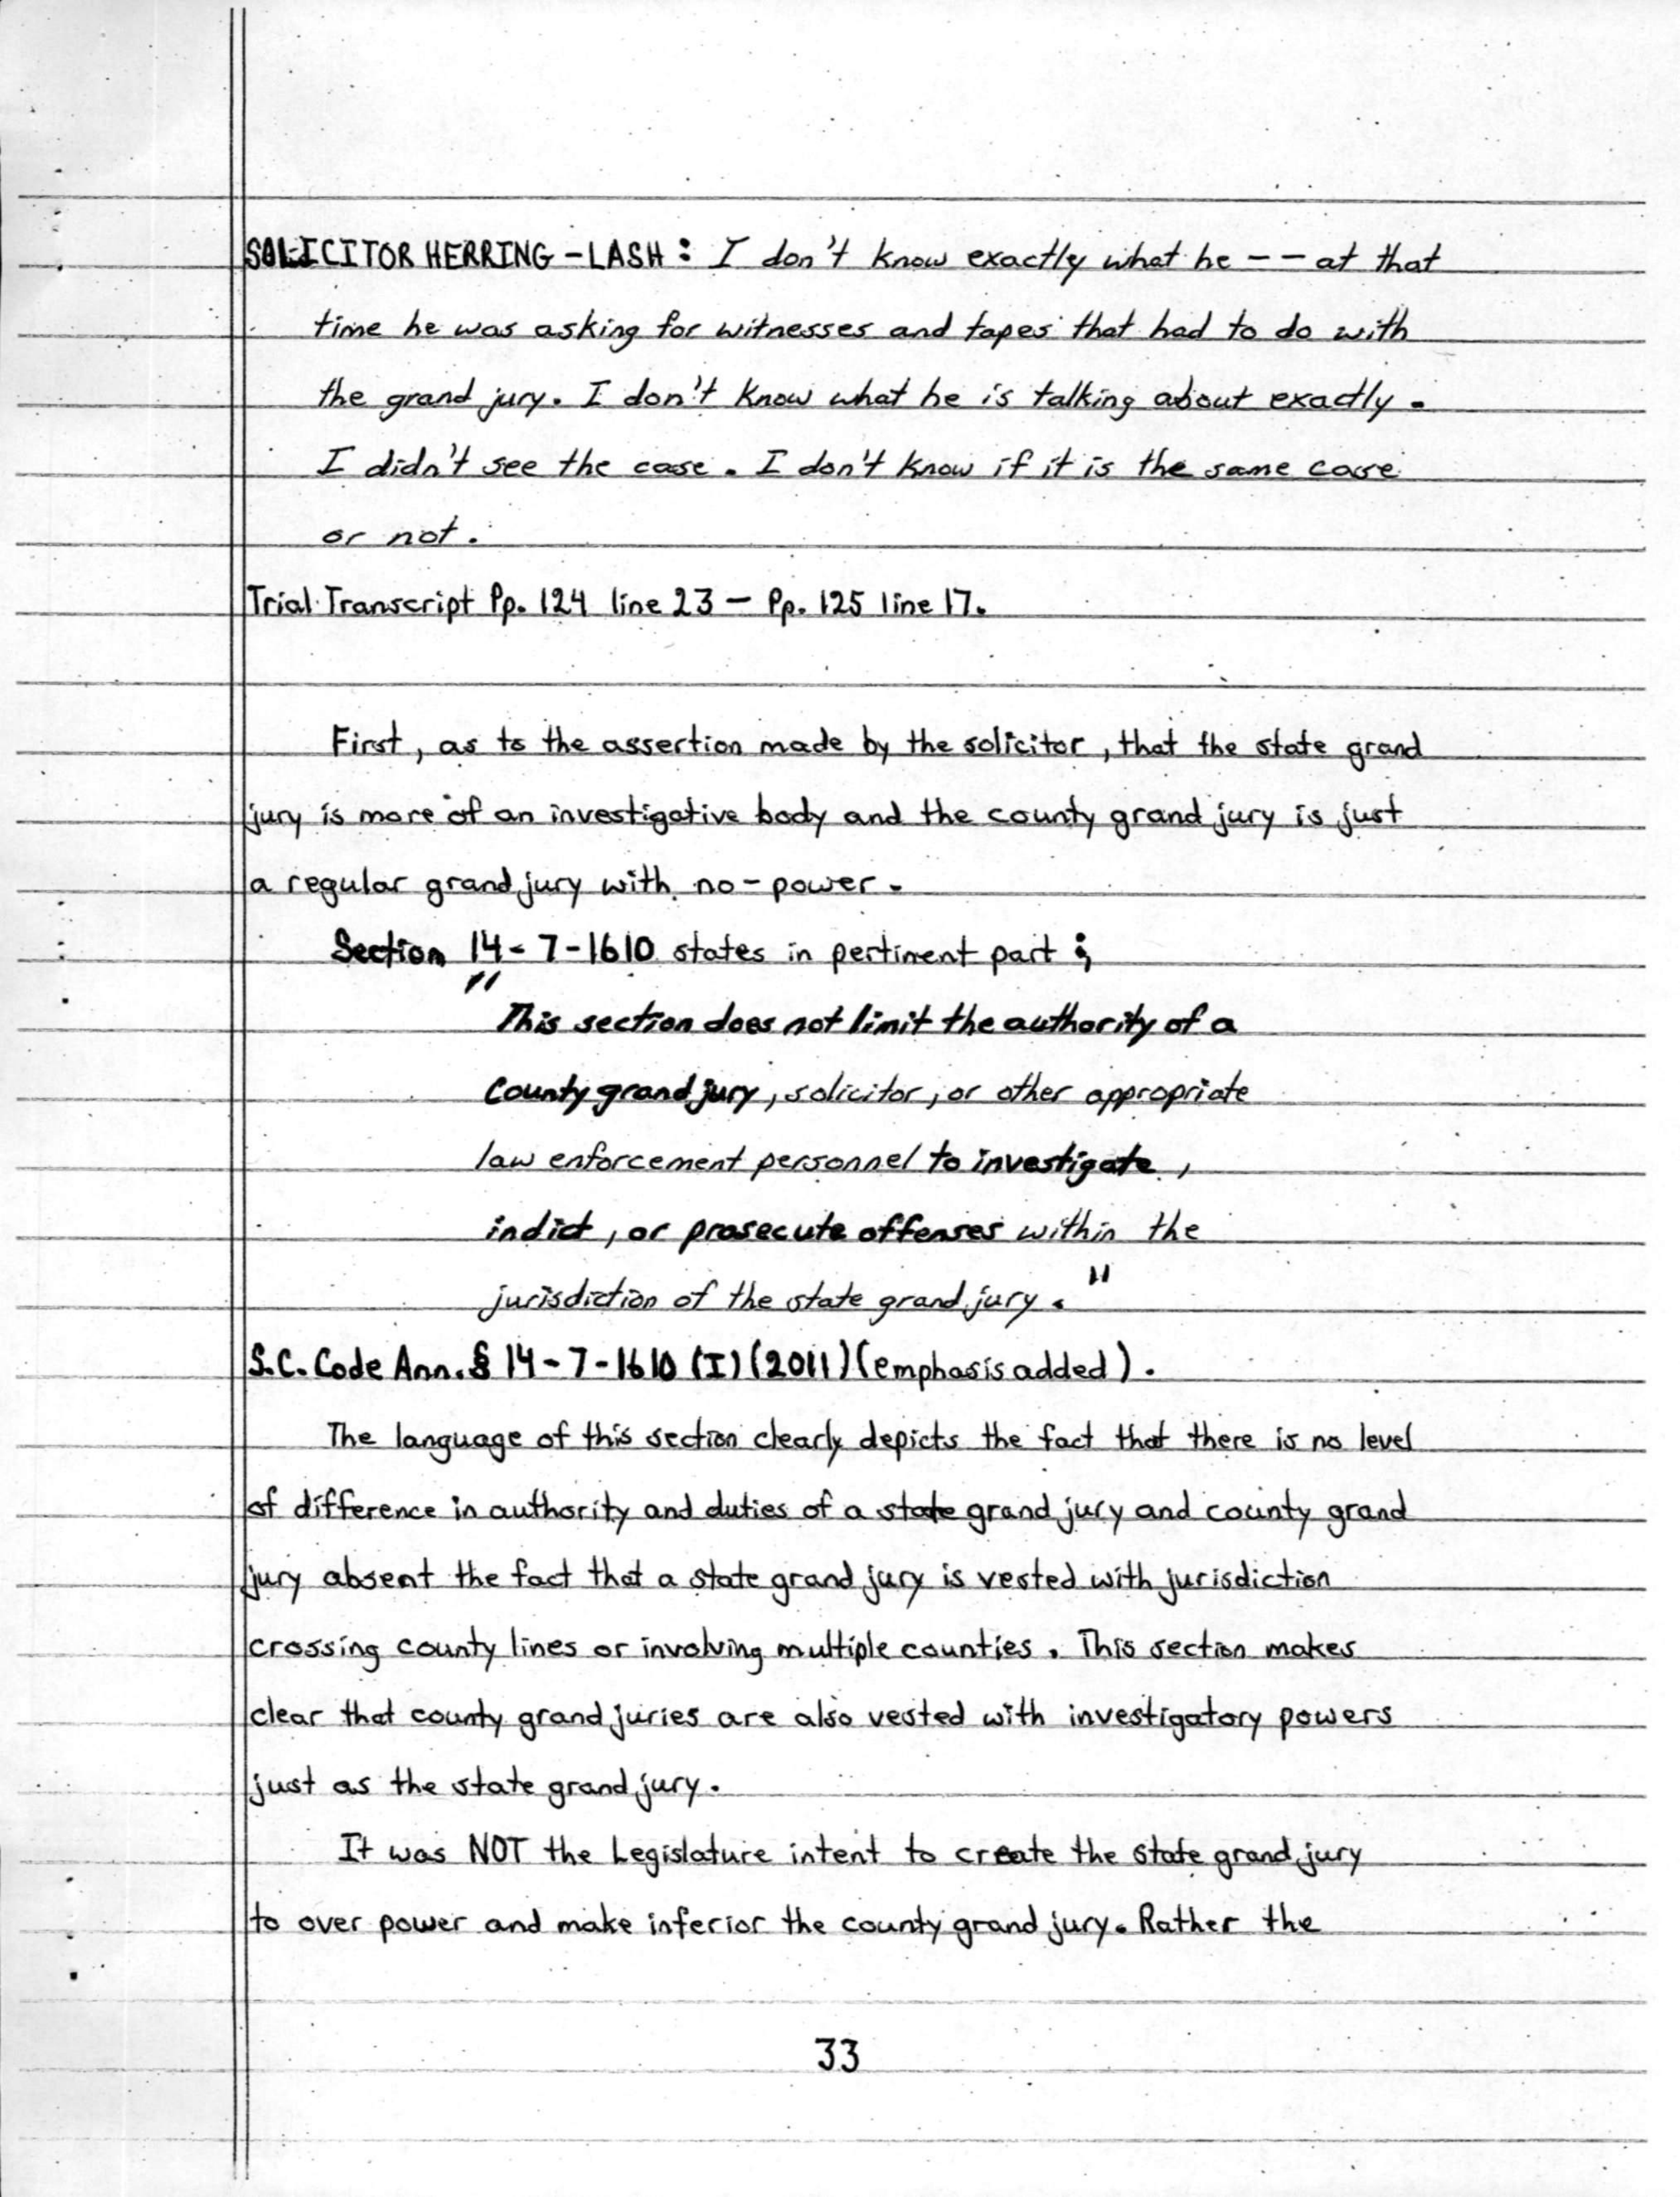 SOLICITOR HERRING-LASH: I don't know exactly what he -- at that
time he was asking for witnesses and tapes that had to do with
the grand jury. I don't know what he is talking about exactly.
I didn't see the case. I don't know if it is the same case
or not.
Trial Transcript Pp. 124 line 23 - Pp. 125 line 17.
First, as to the assertion made by the solicitor, that the state grand
jury is more of an investigative body and the county grand jury is just
a regular grand jury with no-power.
Section 14-7-1610 states in pertinent part;
"This section does not limit the authority of a
County grand jury, solicitor, or other appropriate
law enforcement personnel to investigate,
indict, or prosecute offenses within the
jurisdiction of the state grand jury."
S.C. Code Ann. § 14-7-1610 (I) (2011) (emphasis added).
The language of this section clearly depicts the fact that there is no level
of difference in authority and duties of a state grand jury and county grand
jury absent the fact that a state grand jury is vested with jurisdiction
crossing county lines or involving multiple counties. This section makes
clear that county grand juries are also vested with investigatory powers
just as the state grand jury.
It was NOT the Legislature intent to create the state grand jury
to over power and make inferior the county grand jury. Rather the
33